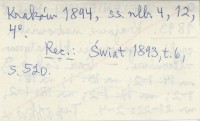 Kraków 1894, ss. nlb 4, 12,
4°.
Rec.: Świat 1893, t. 6,
s. 520.